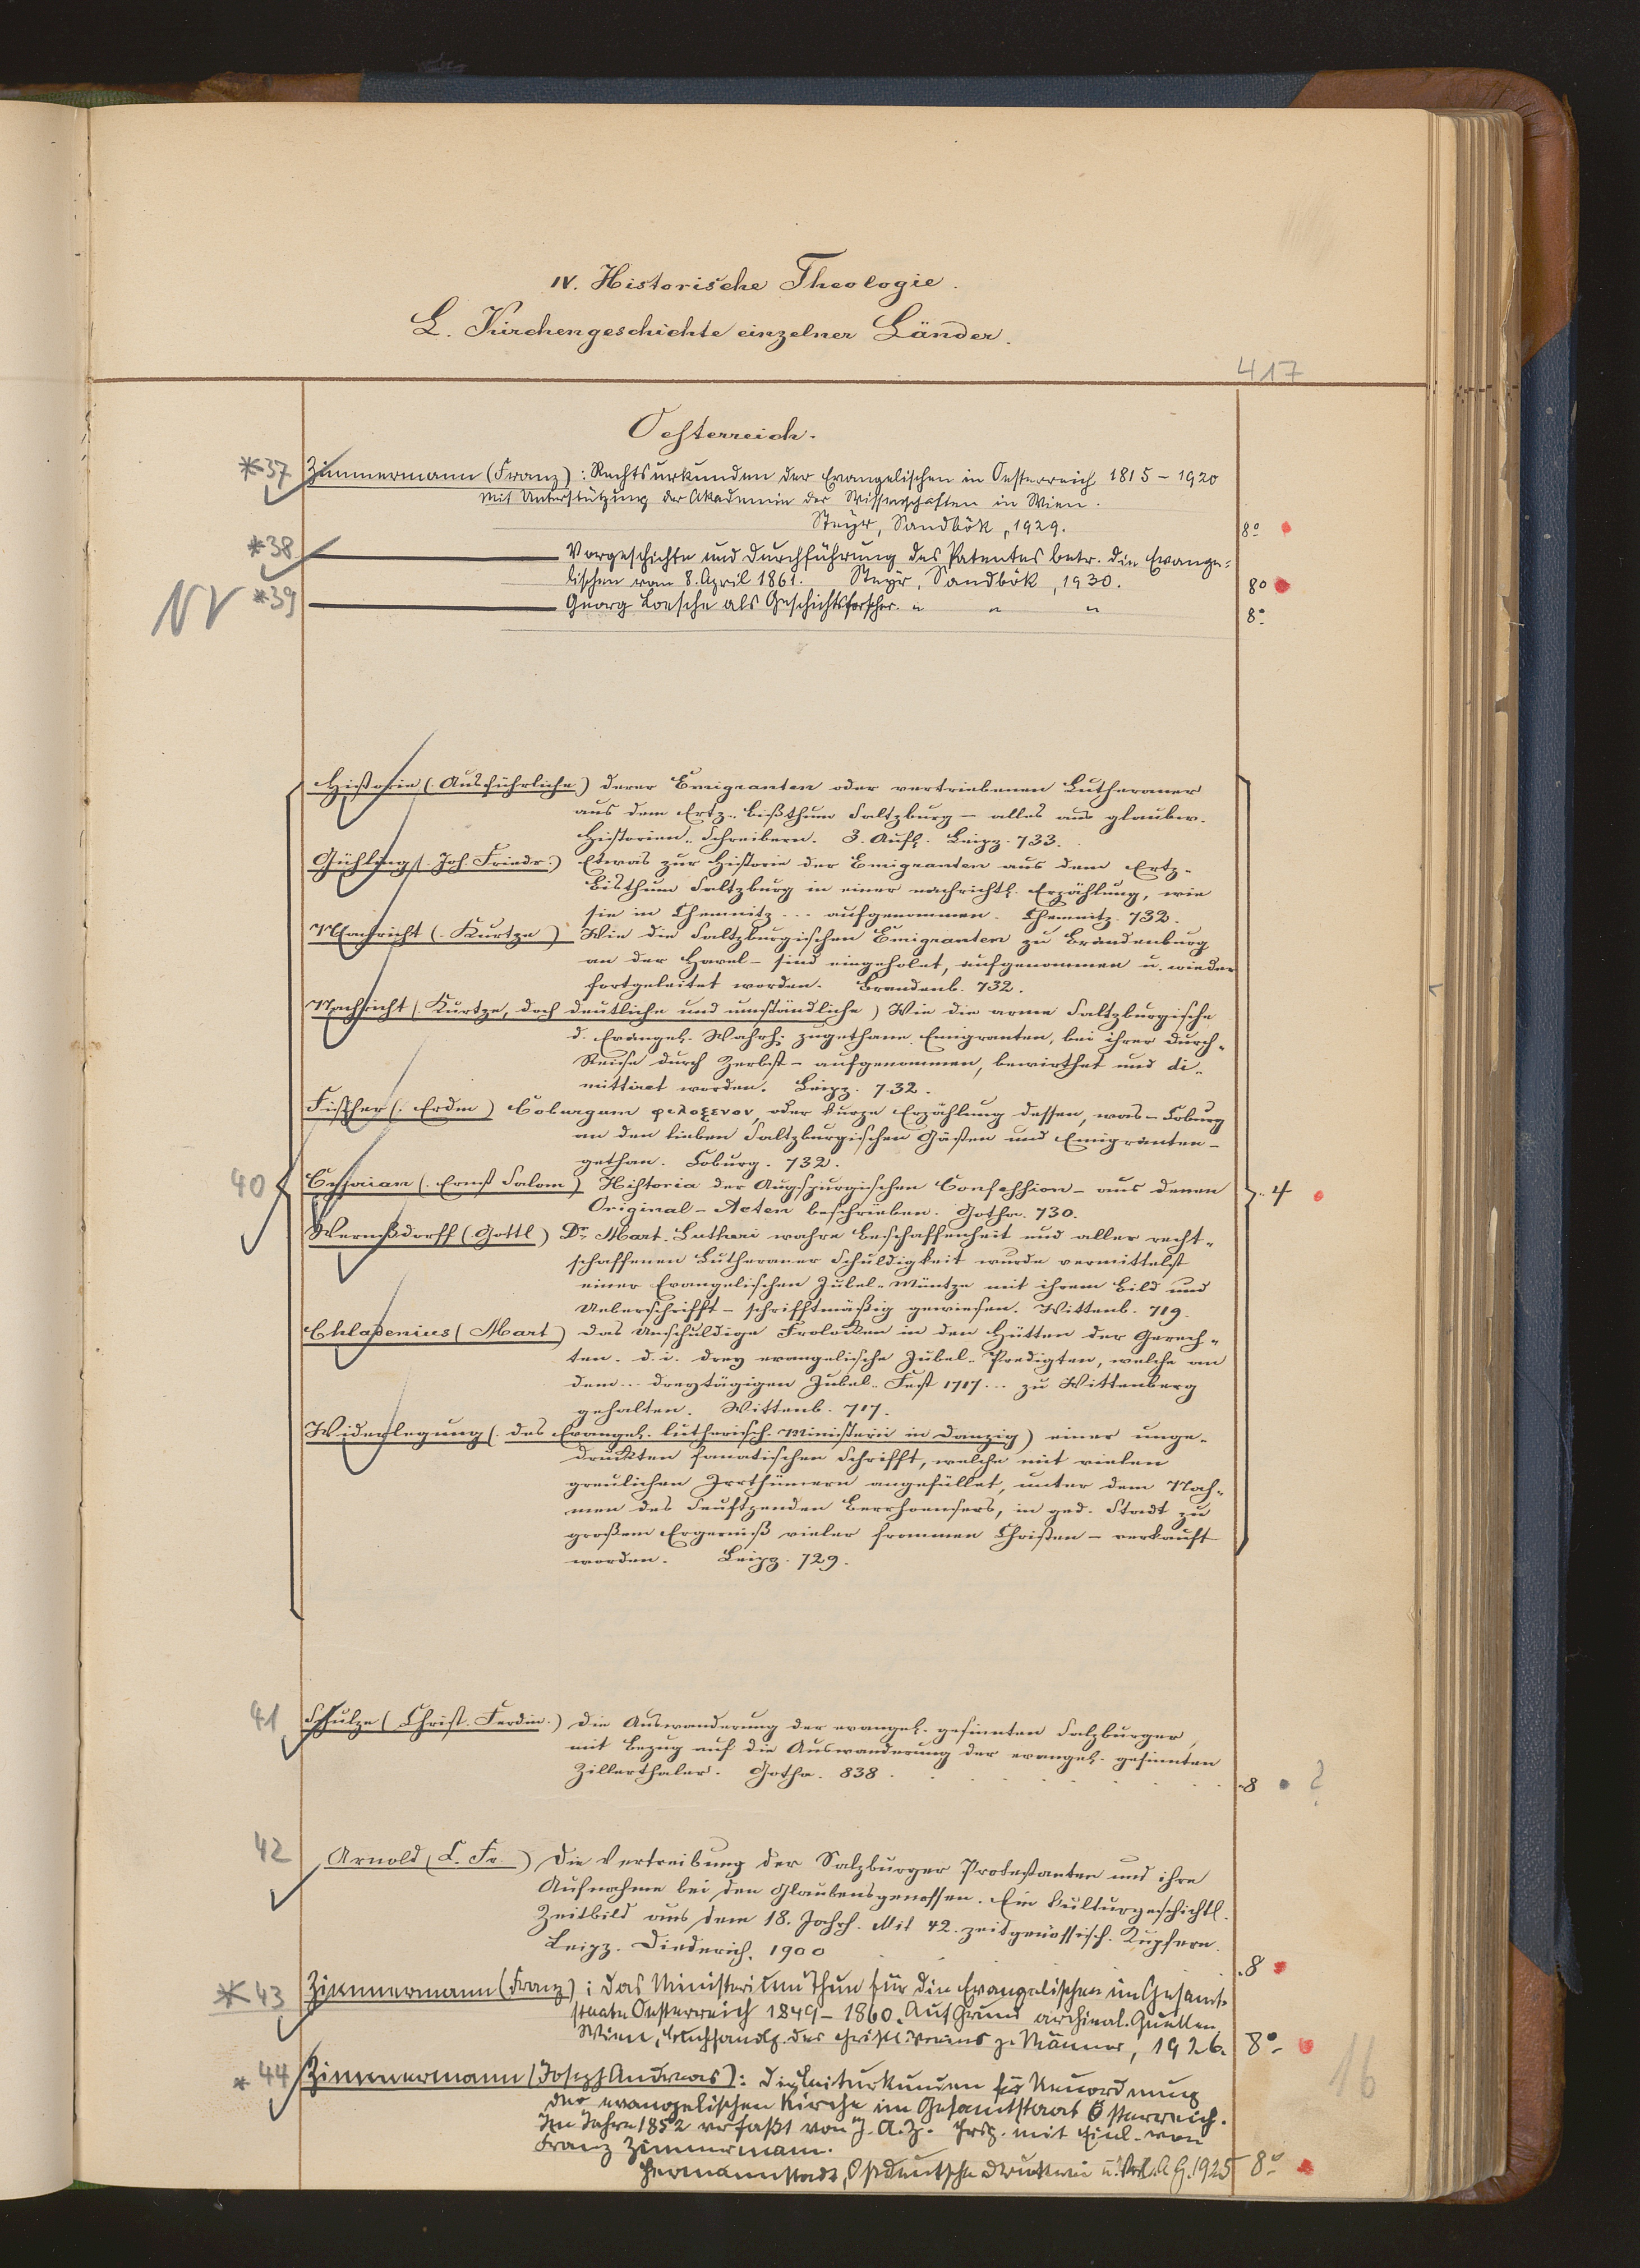 IV. Historische Theologie.
L. Kirchengeschichte einzelner Länder.
417
Oesterreich.
*37 Zimmermann (Franz): Rechtsurkunden der Evangelischen in Oesterreich 1815–1920
Mit Unterstützung der Akademie der Wissenschaften in Wien.
Steyr, Sandbök, 1929. 8°
*38 Vorgeschichte und Durchführung des Patentes betr. die Evange-
lischen vom 8. April 1861. Steyr, Sandbök, 1930. 8°
*39 Georg Loesche als Geschichtsforscher. " " " 8°
Historie (Ausführliche) derer Emigranten oder vertriebenen Lutheraner
aus dem Ertz-Bißthum Saltzburg – alles aus glaubw.
Historien-Schreibern. 3. Aufl. Leipz. 733.
Gühling (Joh. Friedr.) Etwas zur Historie der Emigranten aus dem Ertz-
Bisthum Saltzburg in einer nachrichtl. Erzählung, wie
sie in Chemnitz ... aufgenommen. Chemnitz. 732.
Nachricht (Kurtze) Wie die Saltzburgischen Emigranten zu Brandenburg
an der Havel – sind eingeholet, aufgenommen u. wieder
fortgeleitet worden. Brandenb. 732.
Nachricht (Kurtze, doch deutliche und umständliche) Wie die arme Saltzburgische
d. Evangel. Wahrh. zugethane Emigranten, bei ihrer Durch-
Reise durch Zerbst – aufgenommen, bewirthet und di-
mittiret worden. Leipz. 732.
Fischer (Erdm) Coburgum φιλοξενον, oder kurze Erzählung dessen, was – Coburg
an den lieben Saltzburgischen Gästen und Emigranten –
gethan. Coburg. 732.
40 Cyprian (Ernst Salom) Historia der Augspurgischen Confession – aus denen 4
Original-Acten beschrieben. Gotha. 730.
Wernßdorff (Gottl) Dr. Mart. Lutheri wahre Beschaffenheit und aller recht-
schaffenen Lutheraner Schuldigkeit wurde vermittelst
einer Evangelischen Jubel-Müntze mit ihrem Bild und
Ueberschrifft – schrifftmäßig gewiesen. Wittenb. 719.
Chladenius (Mart) Das Unschuldige Frolocken in den Hütten der Gerech-
ten. d. i. drey evangelische Jubel-Predigten, welche an
dem ... dreytägigen Jubel-Fest 1717 ... zu Wittenberg
gehalten. Wittenb. 717.
Widerlegung (des Evangel. lutherisch. Ministerii in Danzig) einer unge-
druckten fanatischen Schrifft, welche mit vielen
greulichen Irrthümern angefüllet, unter dem Nah-
men des Seuftzenden, in ged. Stadt zu
großem Ergerniß vieler frommen Christen – verkauft
worden. Leipz. 729.
41 Schulze (Christ. Ferdin.) Die Auswanderung der evangel. gesinnten Salzburger,
mit Bezug auf die Auswanderung der evangel. gesinnten
Zillerthaler. Gotha. 838. 8 ?
42 Arnold (C. Fr.) Die Vertreibung der Salzburger Protestanten und ihre
Aufnahme bei den Glaubensgenossen. Ein kulturgeschichtl.
Zeitbild aus dem 18. Jahrh. Mit 42. zeitgenössisch. Kupfern.
Leipz. Diederich. 1900 8
*43 Zimmermann (Franz): Das Ministerium Thun für die Evangelischen im Gesamt-
staate Oesterreich 1849–1860. Auf Grund archival. Quellen
Wien, Buchhandlg. des christl. Vereins j. Männer, 1926. 8°
*44 Zimmermann (Joseph Andreas): Die Leiturkunden für Neuordnung
der evangelischen Kirche im Gesamtstaat Österreich.
Im Jahre 1852 verfaßt von J. A. Z. Hrsg. mit Einl. von
Franz Zimmermann.
Hermannstadt, Ostdeutsche Druckerei u. Verl. A G. 1925 8°
16